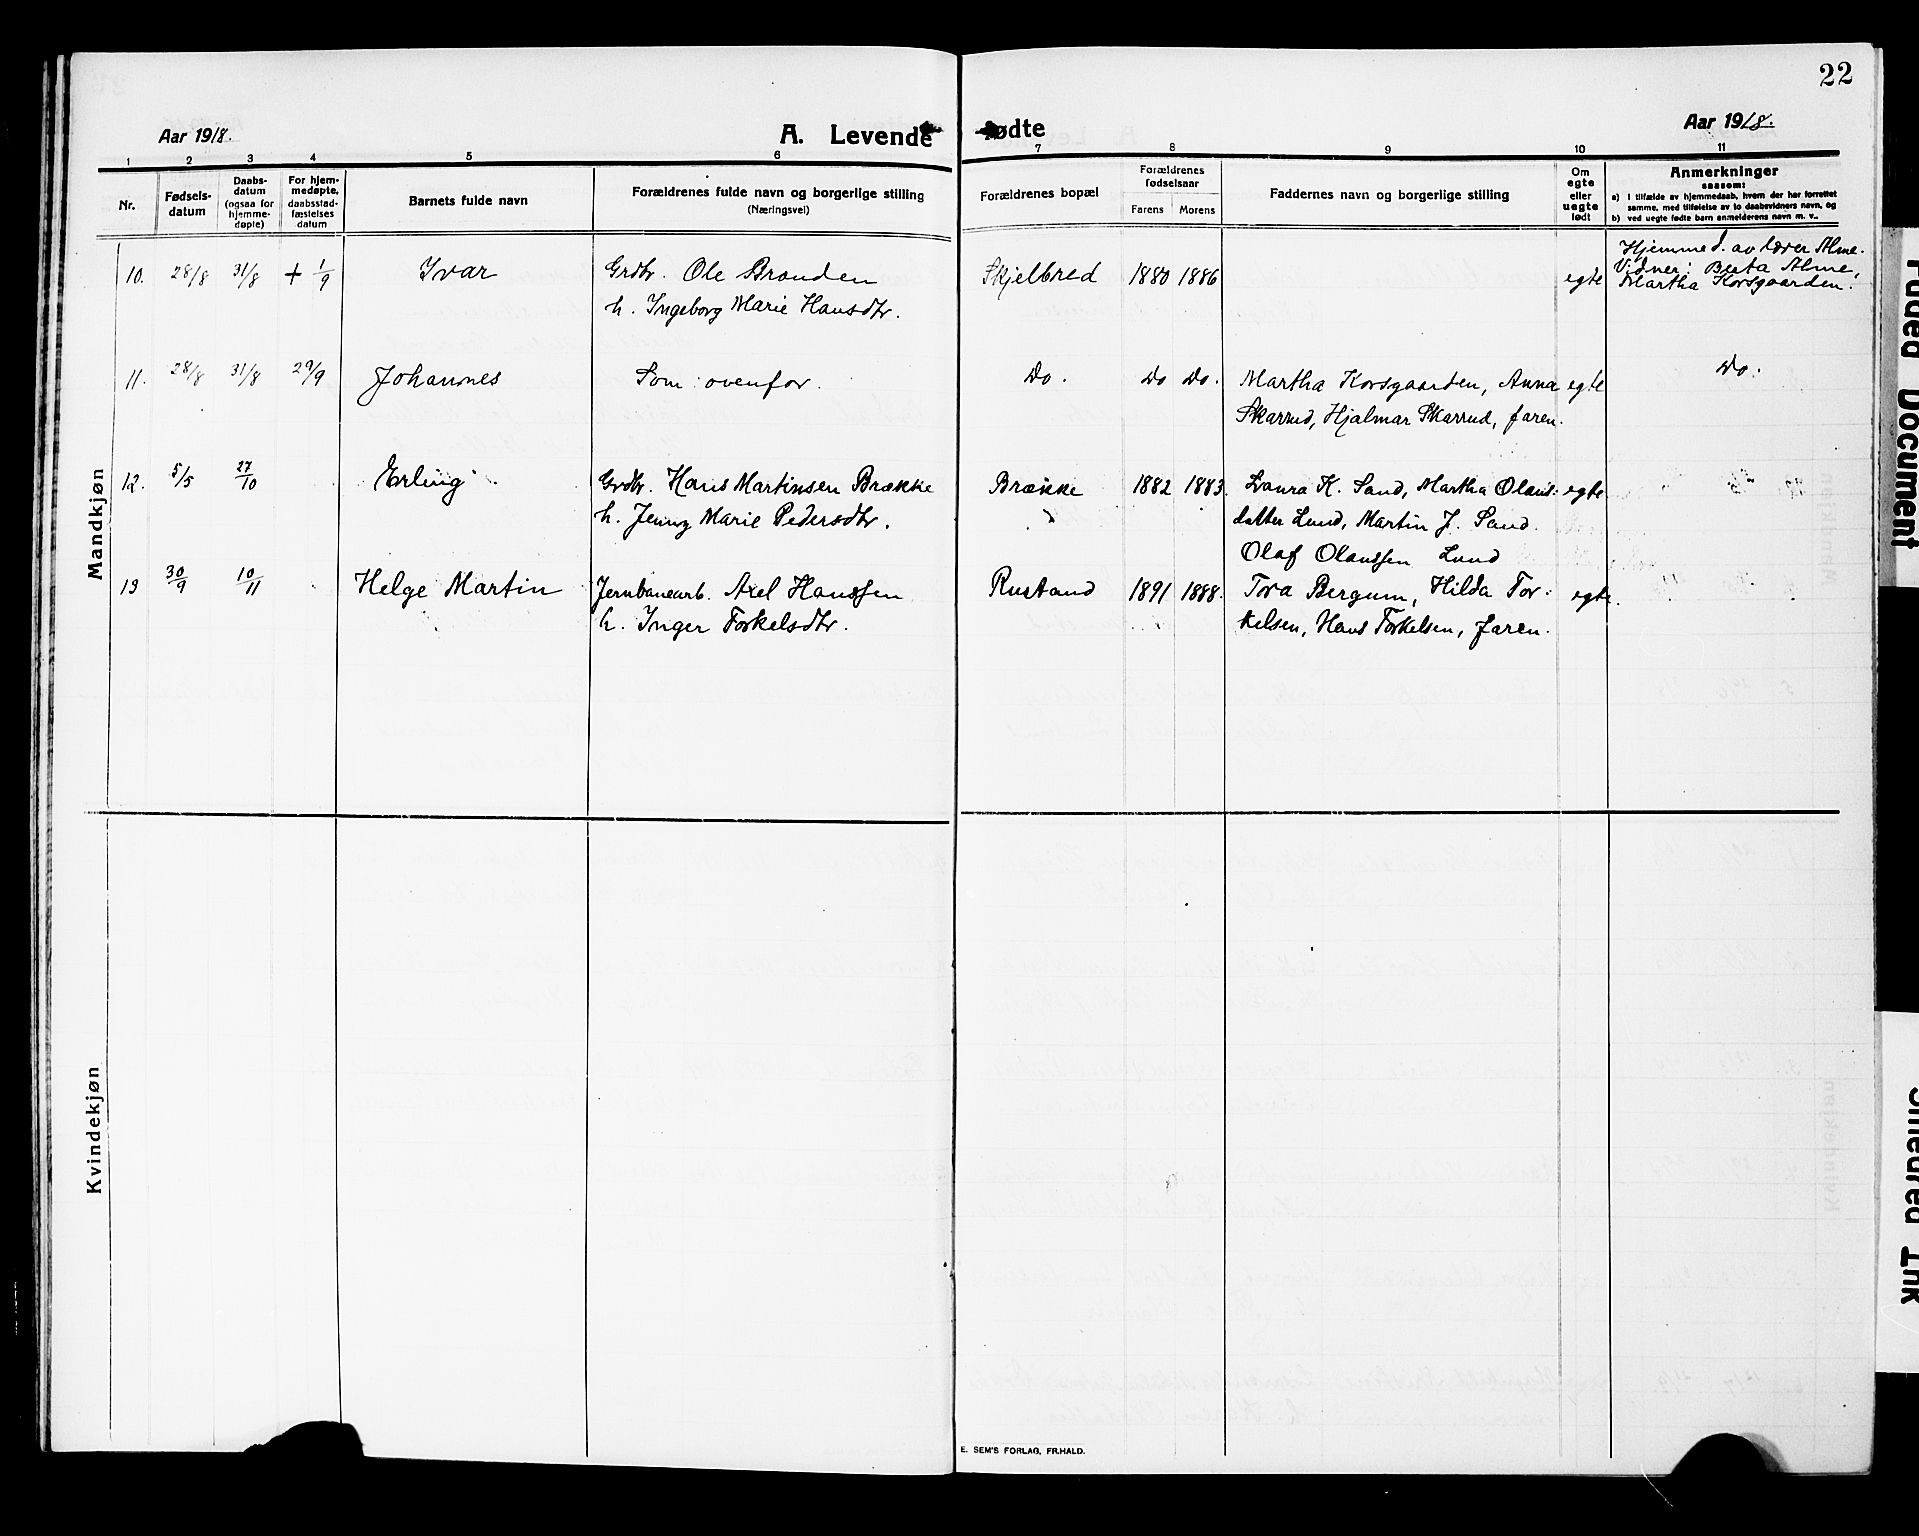 22
Aar 1918.
A. Levende fødte
Aar 1918.
1 2 3 4 5 6 7 8 9 10 11
Nr.
Fødsels-
datum
Daabs-
datum
(ogsaa for
hjemme-
døpte)
For hjem-
medøpte,
daabsstad-
fæstelses
datum
Barnets fulde navn
Forældrenes fulde navn og borgerlige stilling
(Næringsvei)
Forældrenes bopæl
Forældrenes
fødselsaar
Farens Morens
Faddernes navn og borgerlige stilling
Om
egte
eller
uegte
født
Anmerkninger
saasom:
a) i tilfælde av hjemmedaab, hvem der har forrettet
samme, med tilføielse av to daabsvidners navn, og
b) ved uegte fødte barn anmelderens navn m. v..
Mandkjøn
10. 28/8 31/8 + 1/9 Ivar Grdbr. Ole Brænden Skjelbred 1880 1886 egte
h. Ingeborg Marie Hansdtr.
Hjemmed. av lærer Alme.
Vidner: Berta Alme,
Martha Korsgaarden.
11. 28/8 31/8 29/9 Johannes Som ovenfor. Do. Do Do. Martha Korsgaarden, Anna egte Do.
Skarrud, Hjalmar Skarrud, faren.
12. 5/5 27/10 Erling Grdbr. Hans Martinsen Brække Brække 1882 1883. Laura K. Sand, Martha Olaus- egte
h. Jenny Marie Pedersdtr. datter Lund, Martin J. Sand.
Olaf Olaussen Lund
13 30/9 10/11 Helge Martin Jernbanearb. Axel Hanssen Rustand 1891 1888. Tora Bergum, Hilda Tor- egte.
h. Inger Torkelsdtr. kelsen, Hans Torkelsen, faren.
Kvindekjøn
E. SEM'S FORLAG, FR.HALD.
Faded Document
Smeared Ink